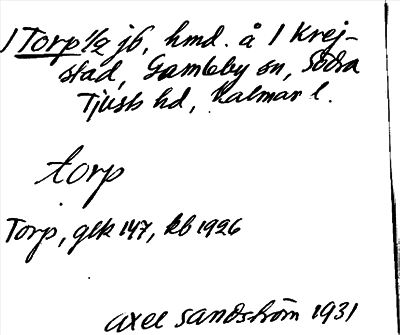 1 Torp 1/2 jb, hmd. å 1 Krej-
stad, Gamleby sn, Södra
Tjusts hd, Kalmar l.
torp
Torp, glk 147, kb 1926
Axel Sandström 1931